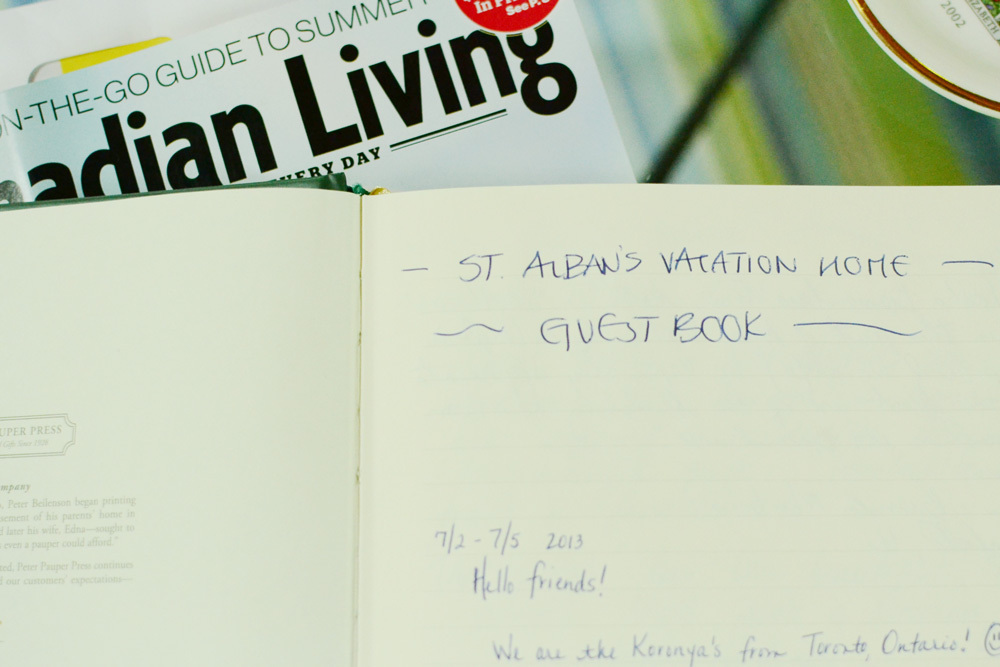 In
See P.
ON-THE-GO GUIDE TO SUMMER
adian Living
VERY DAY
ELIZABETH
2002
— ST. ALBAN'S VACATION HOME —
~ GUEST BOOK ~
UPER PRESS
Gifts Since 1928
ompany
, Peter Beilenson began printing
sement of his parents' home in
d later his wife, Edna—sought to
even a pauper could afford."
ted, Peter Pauper Press continues
d our customers' expectations—
7/2 - 7/5 2013
Hello friends!
We are the Koronya's from Toronto, Ontario! ☺